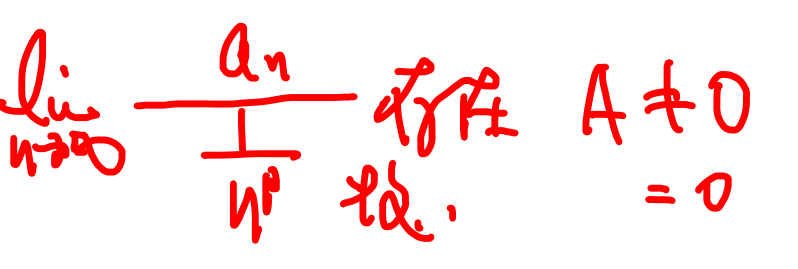 lim n→∞ aₙ / (1/nᵖ) 存在 A ≠ 0
= 0